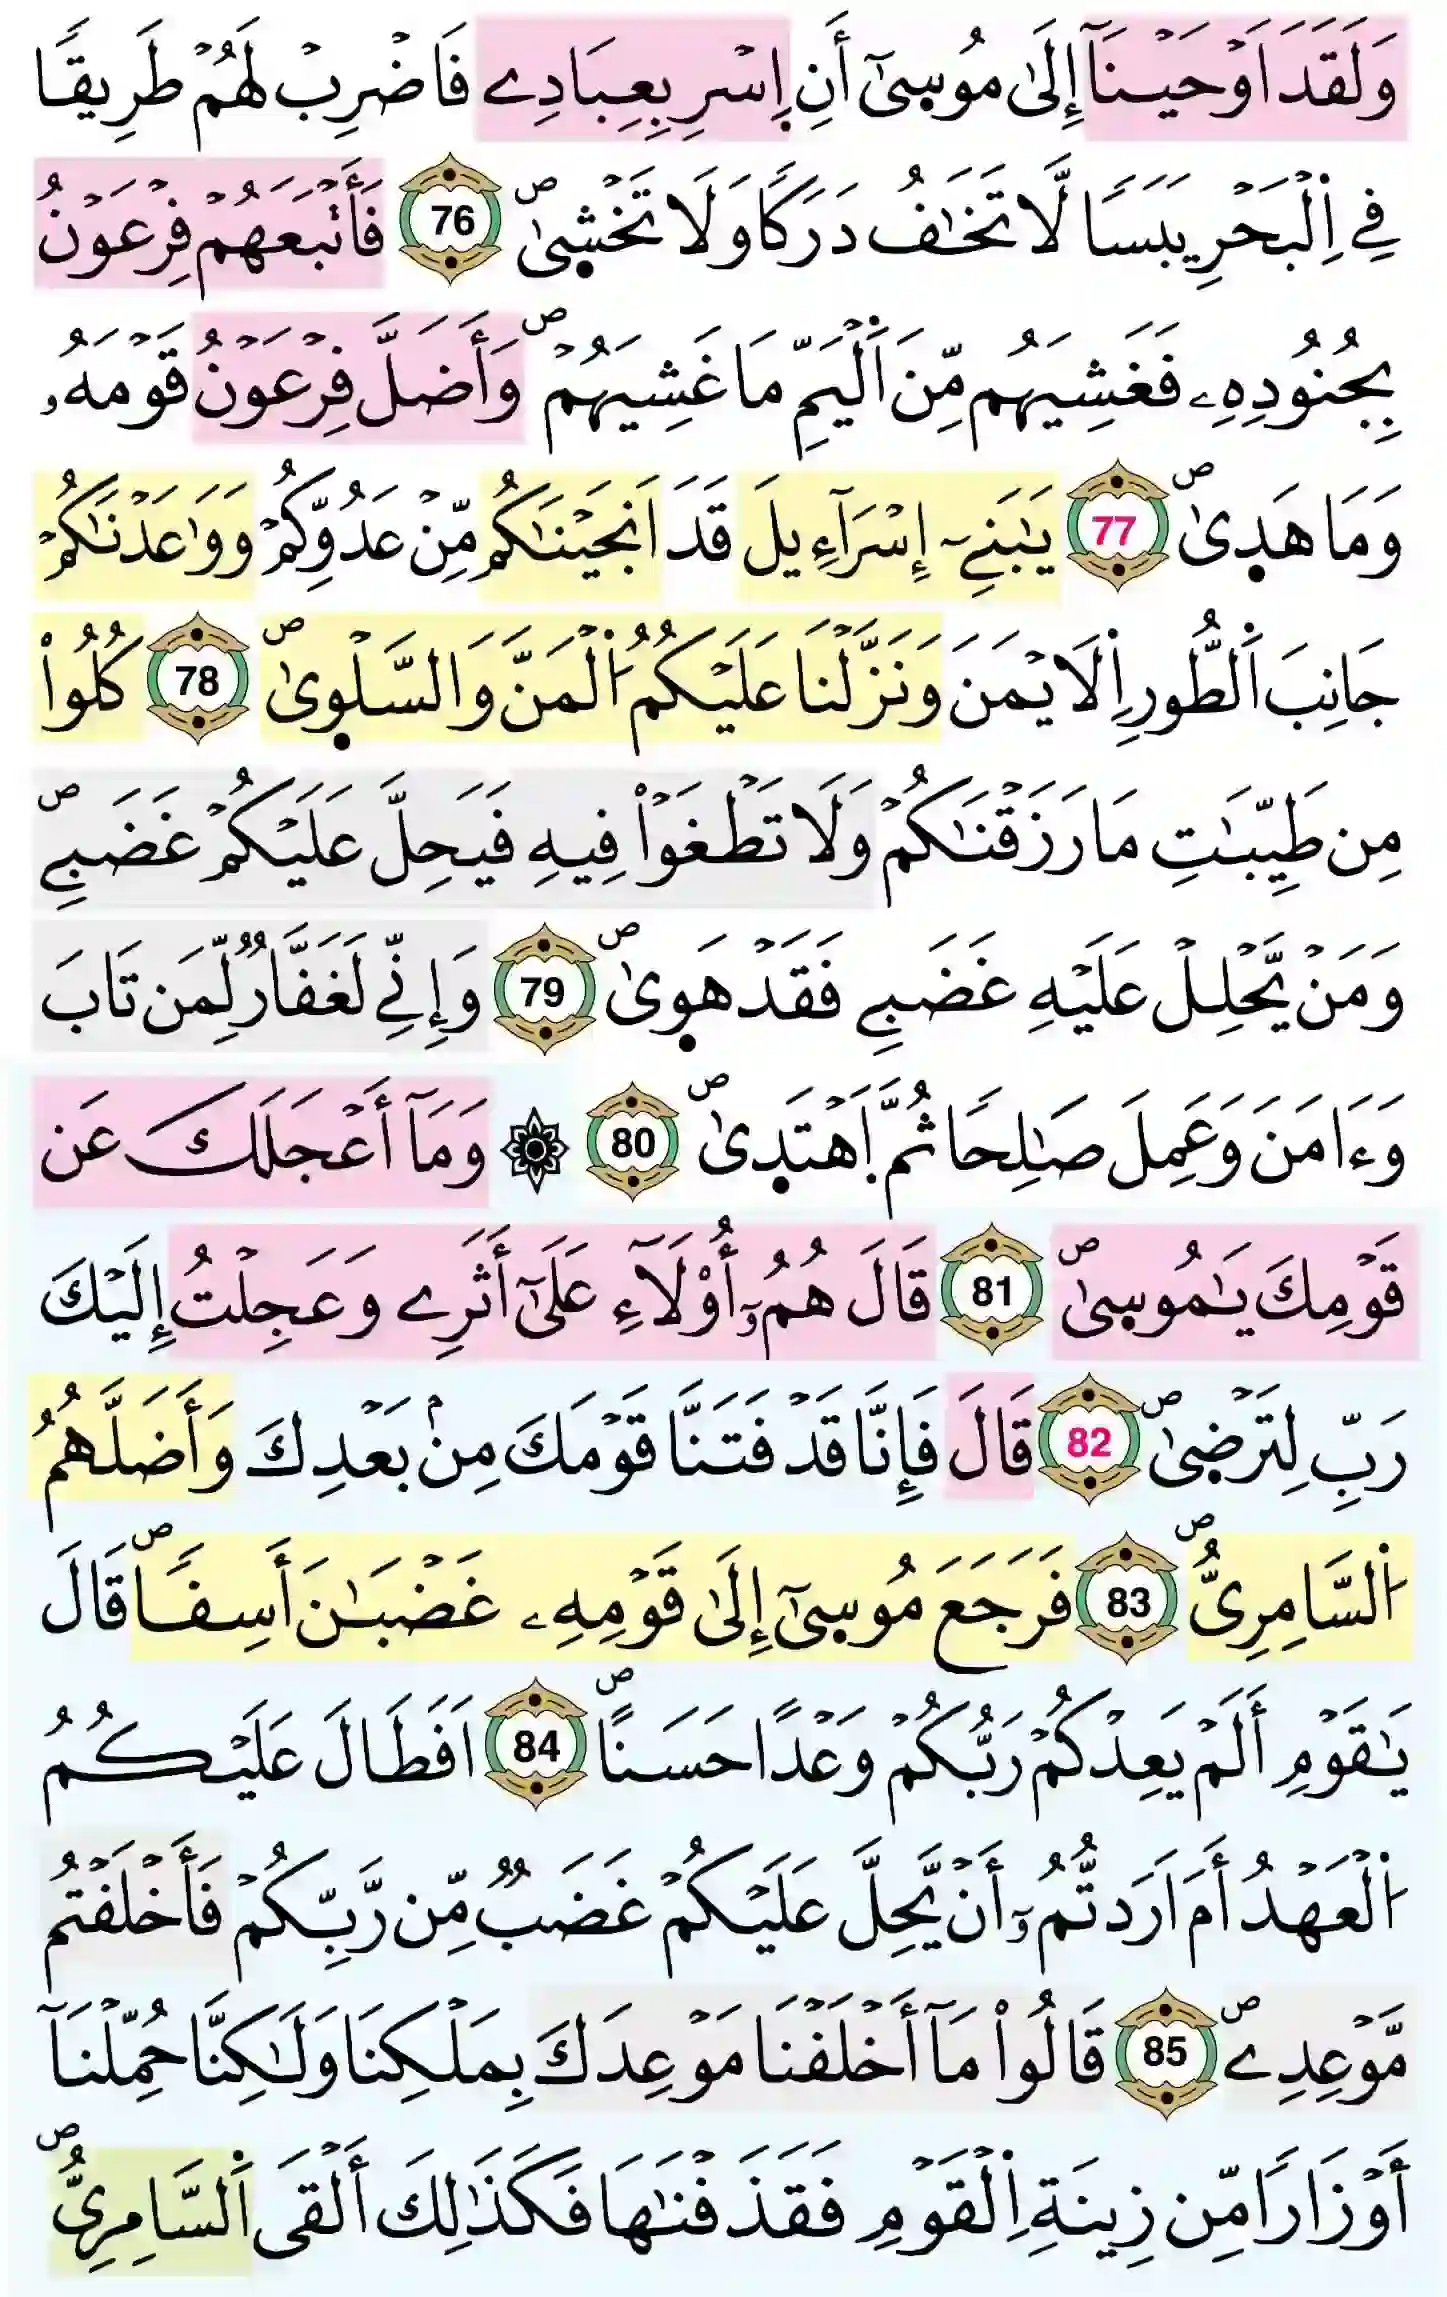 وَلَقَدَ اَوْحَيْنَآ إِلَىٰ مُوسۭيٰٓ أَنِ اِ۪سْرِ بِعِبَادِے فَاضْرِبْ لَهُمْ طَرِيقًا
فِے اِ۬لْبَحْرِ يَبَسًا لَّا تَخَٰفُ دَرَكًا وَلَا تَخْش۪يٰۖ 76 فَأَتْبَعَهُمْ فِرْعَوْنُ
بِجُنُودِهِۦ فَغَشِيَهُم مِّنَ اَ۬لْيَمِّ مَا غَشِيَهُمْۖ وَأَضَلَّ فِرْعَوْنُ قَوْمَهُۥ
وَمَا هَد۪يٰۖ 77 يَٰبَنِےٓ إِسْرَآءِيلَ قَدَ اَنجَيْنَٰكُم مِّنْ عَدُوِّكُمْ وَوَٰعَدْنَٰكُمْ
جَانِبَ اَ۬لطُّورِ اِ۬لَايْمَنَ وَنَزَّلْنَا عَلَيْكُمُ اُ۬لْمَنَّ وَالسَّلْو۪يٰۖ 78 كُلُواْ
مِن طَيِّبَٰتِ مَا رَزَقْنَٰكُمْ وَلَا تَطْغَوْاْ فِيهِ فَيَحِلَّ عَلَيْكُمْ غَضَبِےۖ
وَمَنْ يَّحْلِلْ عَلَيْهِ غَضَبِے فَقَدْ هَو۪يٰۖ 79 وَإِنِّے لَغَفَّارٌ لِّمَن تَابَ
وَءَامَنَ وَعَمِلَ صَٰلِحًا ثُمَّ اَ۪هْتَد۪يٰۖ 80 ۞ وَمَآ أَعْجَلَكَ عَن
قَوْمِكَ يَٰمُوس۪يٰۖ 81 قَالَ هُمُۥٓ أُوْلَآءِ عَلَىٰٓ أَثَرِے وَعَجِلْتُ إِلَيْكَ
رَبِّ لِتَرْض۪يٰۖ 82 قَالَ فَإِنَّا قَدْ فَتَنَّا قَوْمَكَ مِنۢ بَعْدِكَ وَأَضَلَّهُمُ
اُ۬لسَّامِرِيُّۖ 83 فَرَجَعَ مُوس۪يٰٓ إِلَىٰ قَوْمِهِۦ غَضْبَٰنَ أَسِفًاۖ قَالَ
يَٰقَوْمِ أَلَمْ يَعِدْكُمْ رَبُّكُمْ وَعْدًا حَسَنًاۖ 84 اَفَطَالَ عَلَيْكُمُ
اُ۬لْعَهْدُ أَمَ اَرَدتُّمُۥٓ أَنْ يَّحِلَّ عَلَيْكُمْ غَضَبٌ مِّن رَّبِّكُمْ فَأَخْلَفْتُم
مَّوْعِدِےۖ 85 قَالُواْ مَآ أَخْلَفْنَا مَوْعِدَكَ بِمَلْكِنَا وَلَٰكِنَّا حُمِّلْنَآ
أَوْزَارًا مِّن زِينَةِ اِ۬لْقَوْمِ فَقَذَفْنَٰهَا فَكَذَٰلِكَ أَلْقَى اَ۬لسَّامِرِيُّۖ